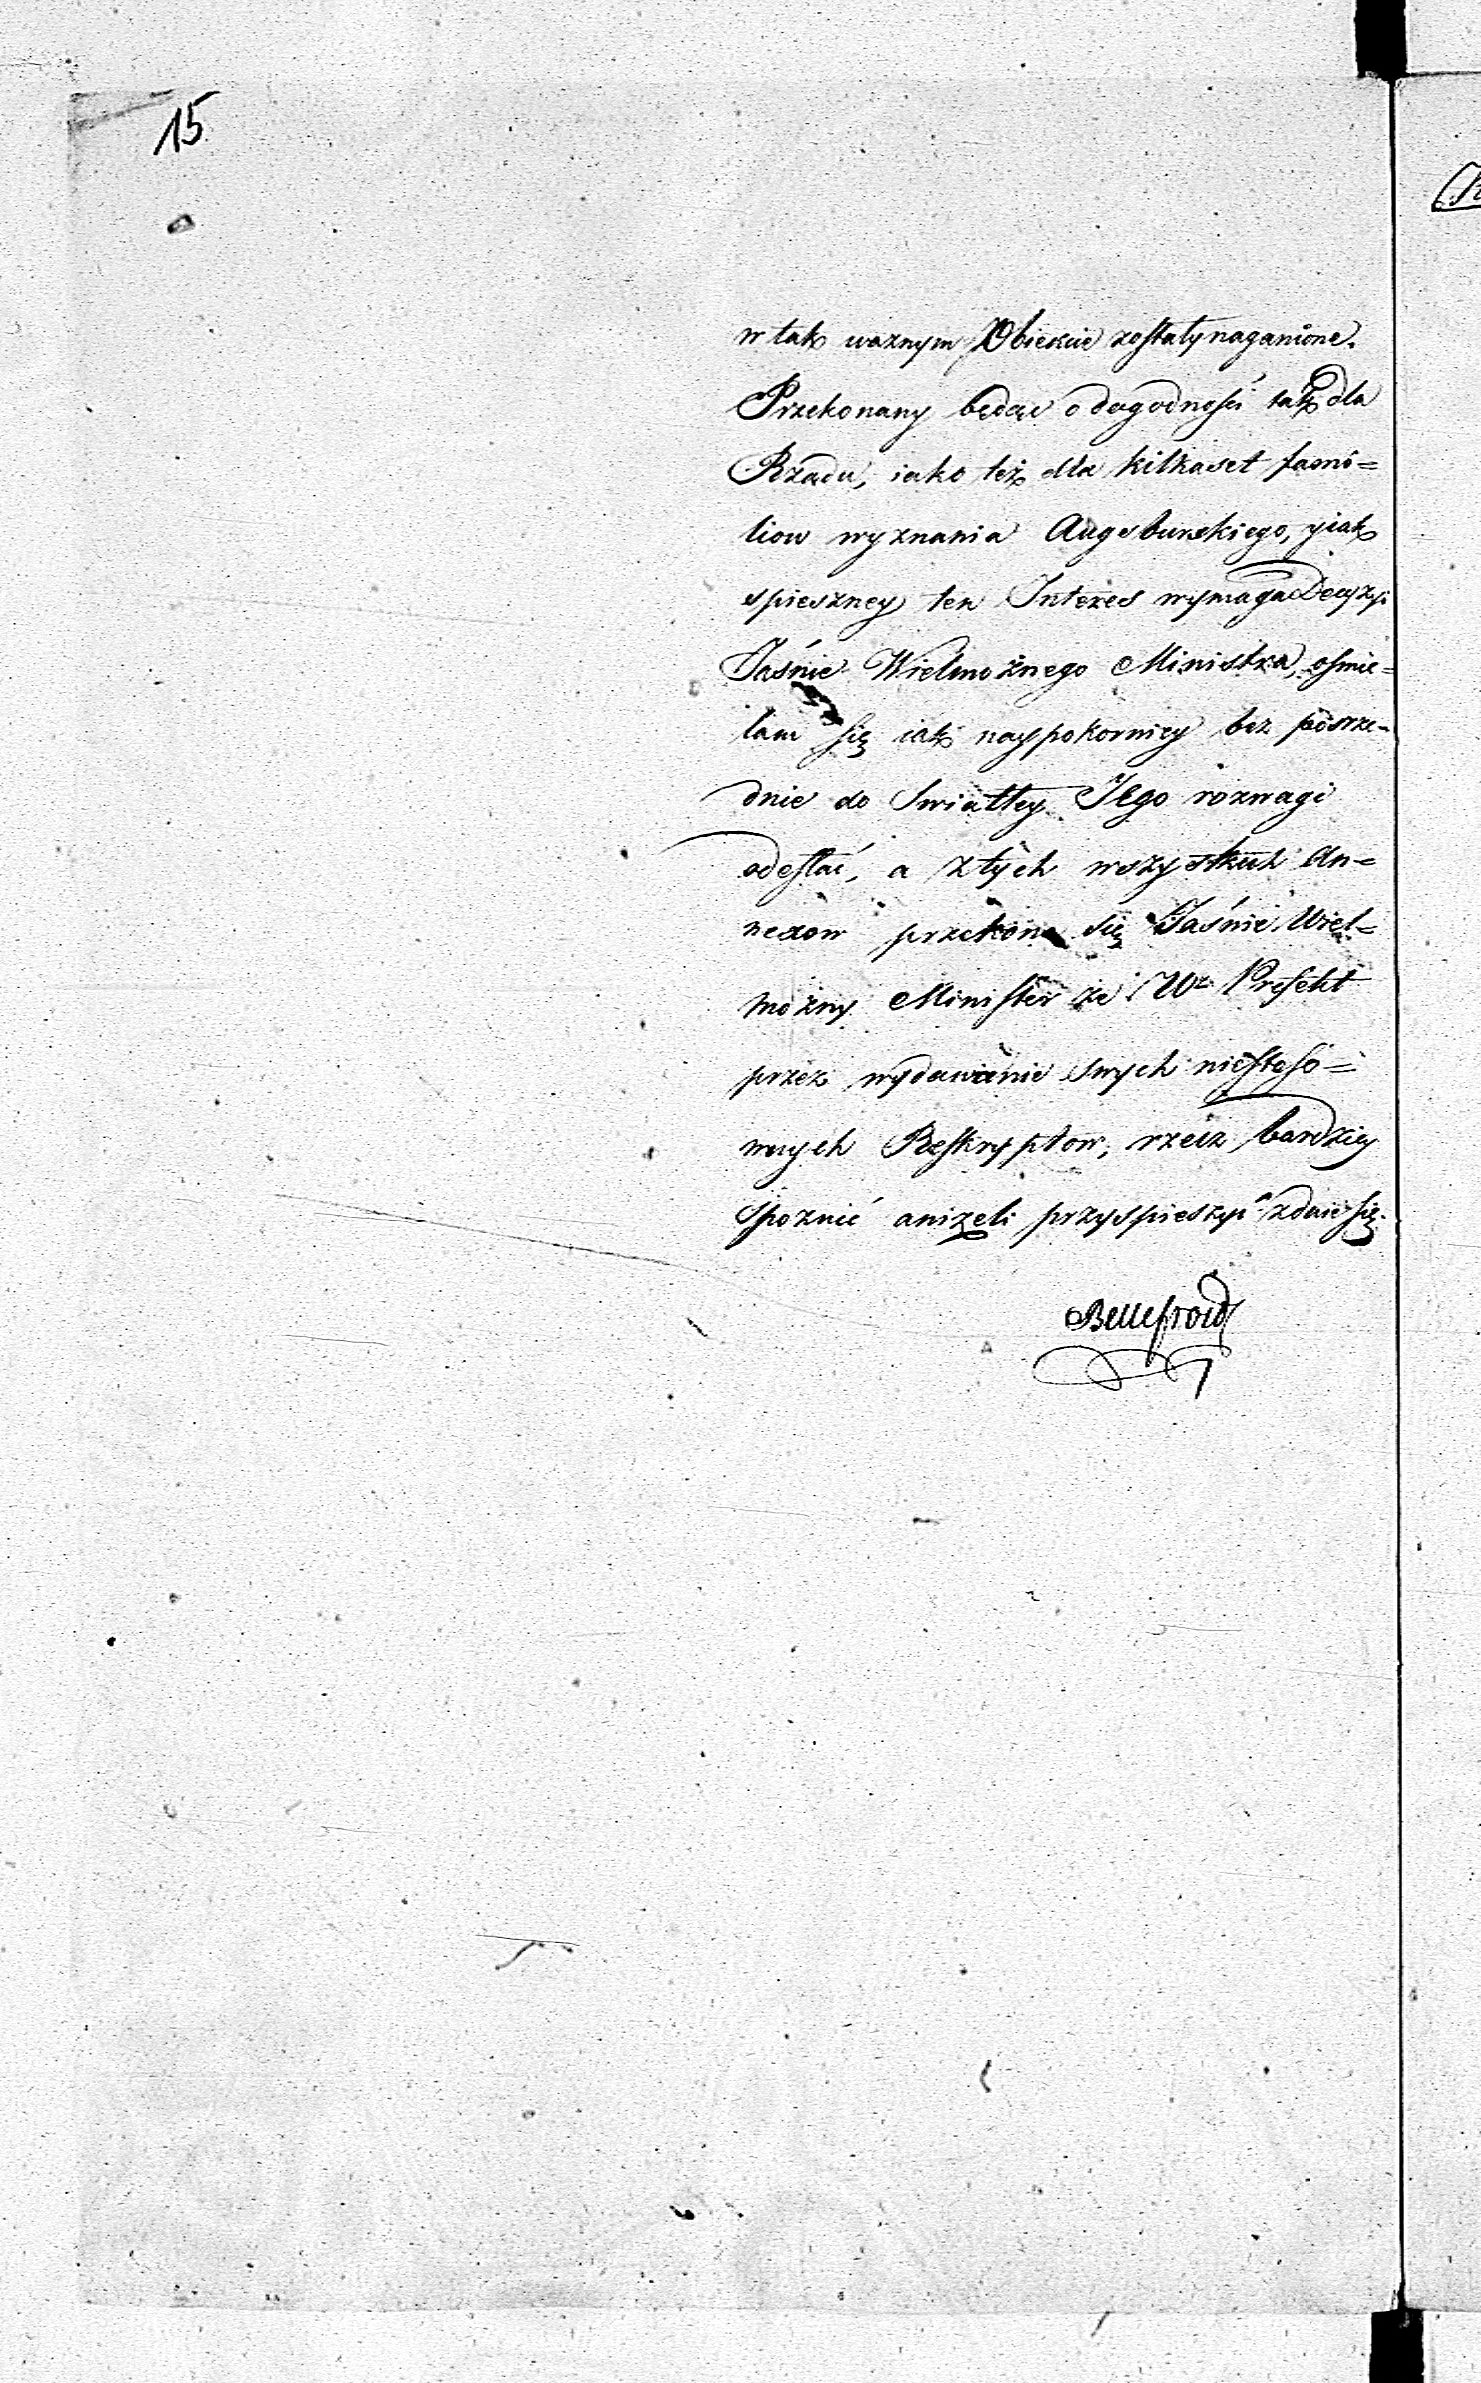 15
w tak waznym Obiekcie zostały naganione.
Przekonany będąc o dogodności tak dla
Rządu, iako też dla kilkaset fami=
liow wyznania Augsburskiego, y iak
spieszney ten Interes wymaga Decyzyi
Jaśnie Wielmożnego Ministra, osmie=
lam się iak naypokorniey bez posrze-
dnie do Swiatłey JEgo rozwagi
odesłać, a z tych wszystkich An=
nexow przekona się Jaśnie Wiel=
możny Minister że Wz Prefekt
przez wydawanie swych niestoso=
wnych Reskryptow, rzecz bardziey
spoznić aniżeli przyspieszyć zdaie się.
Bellefroid